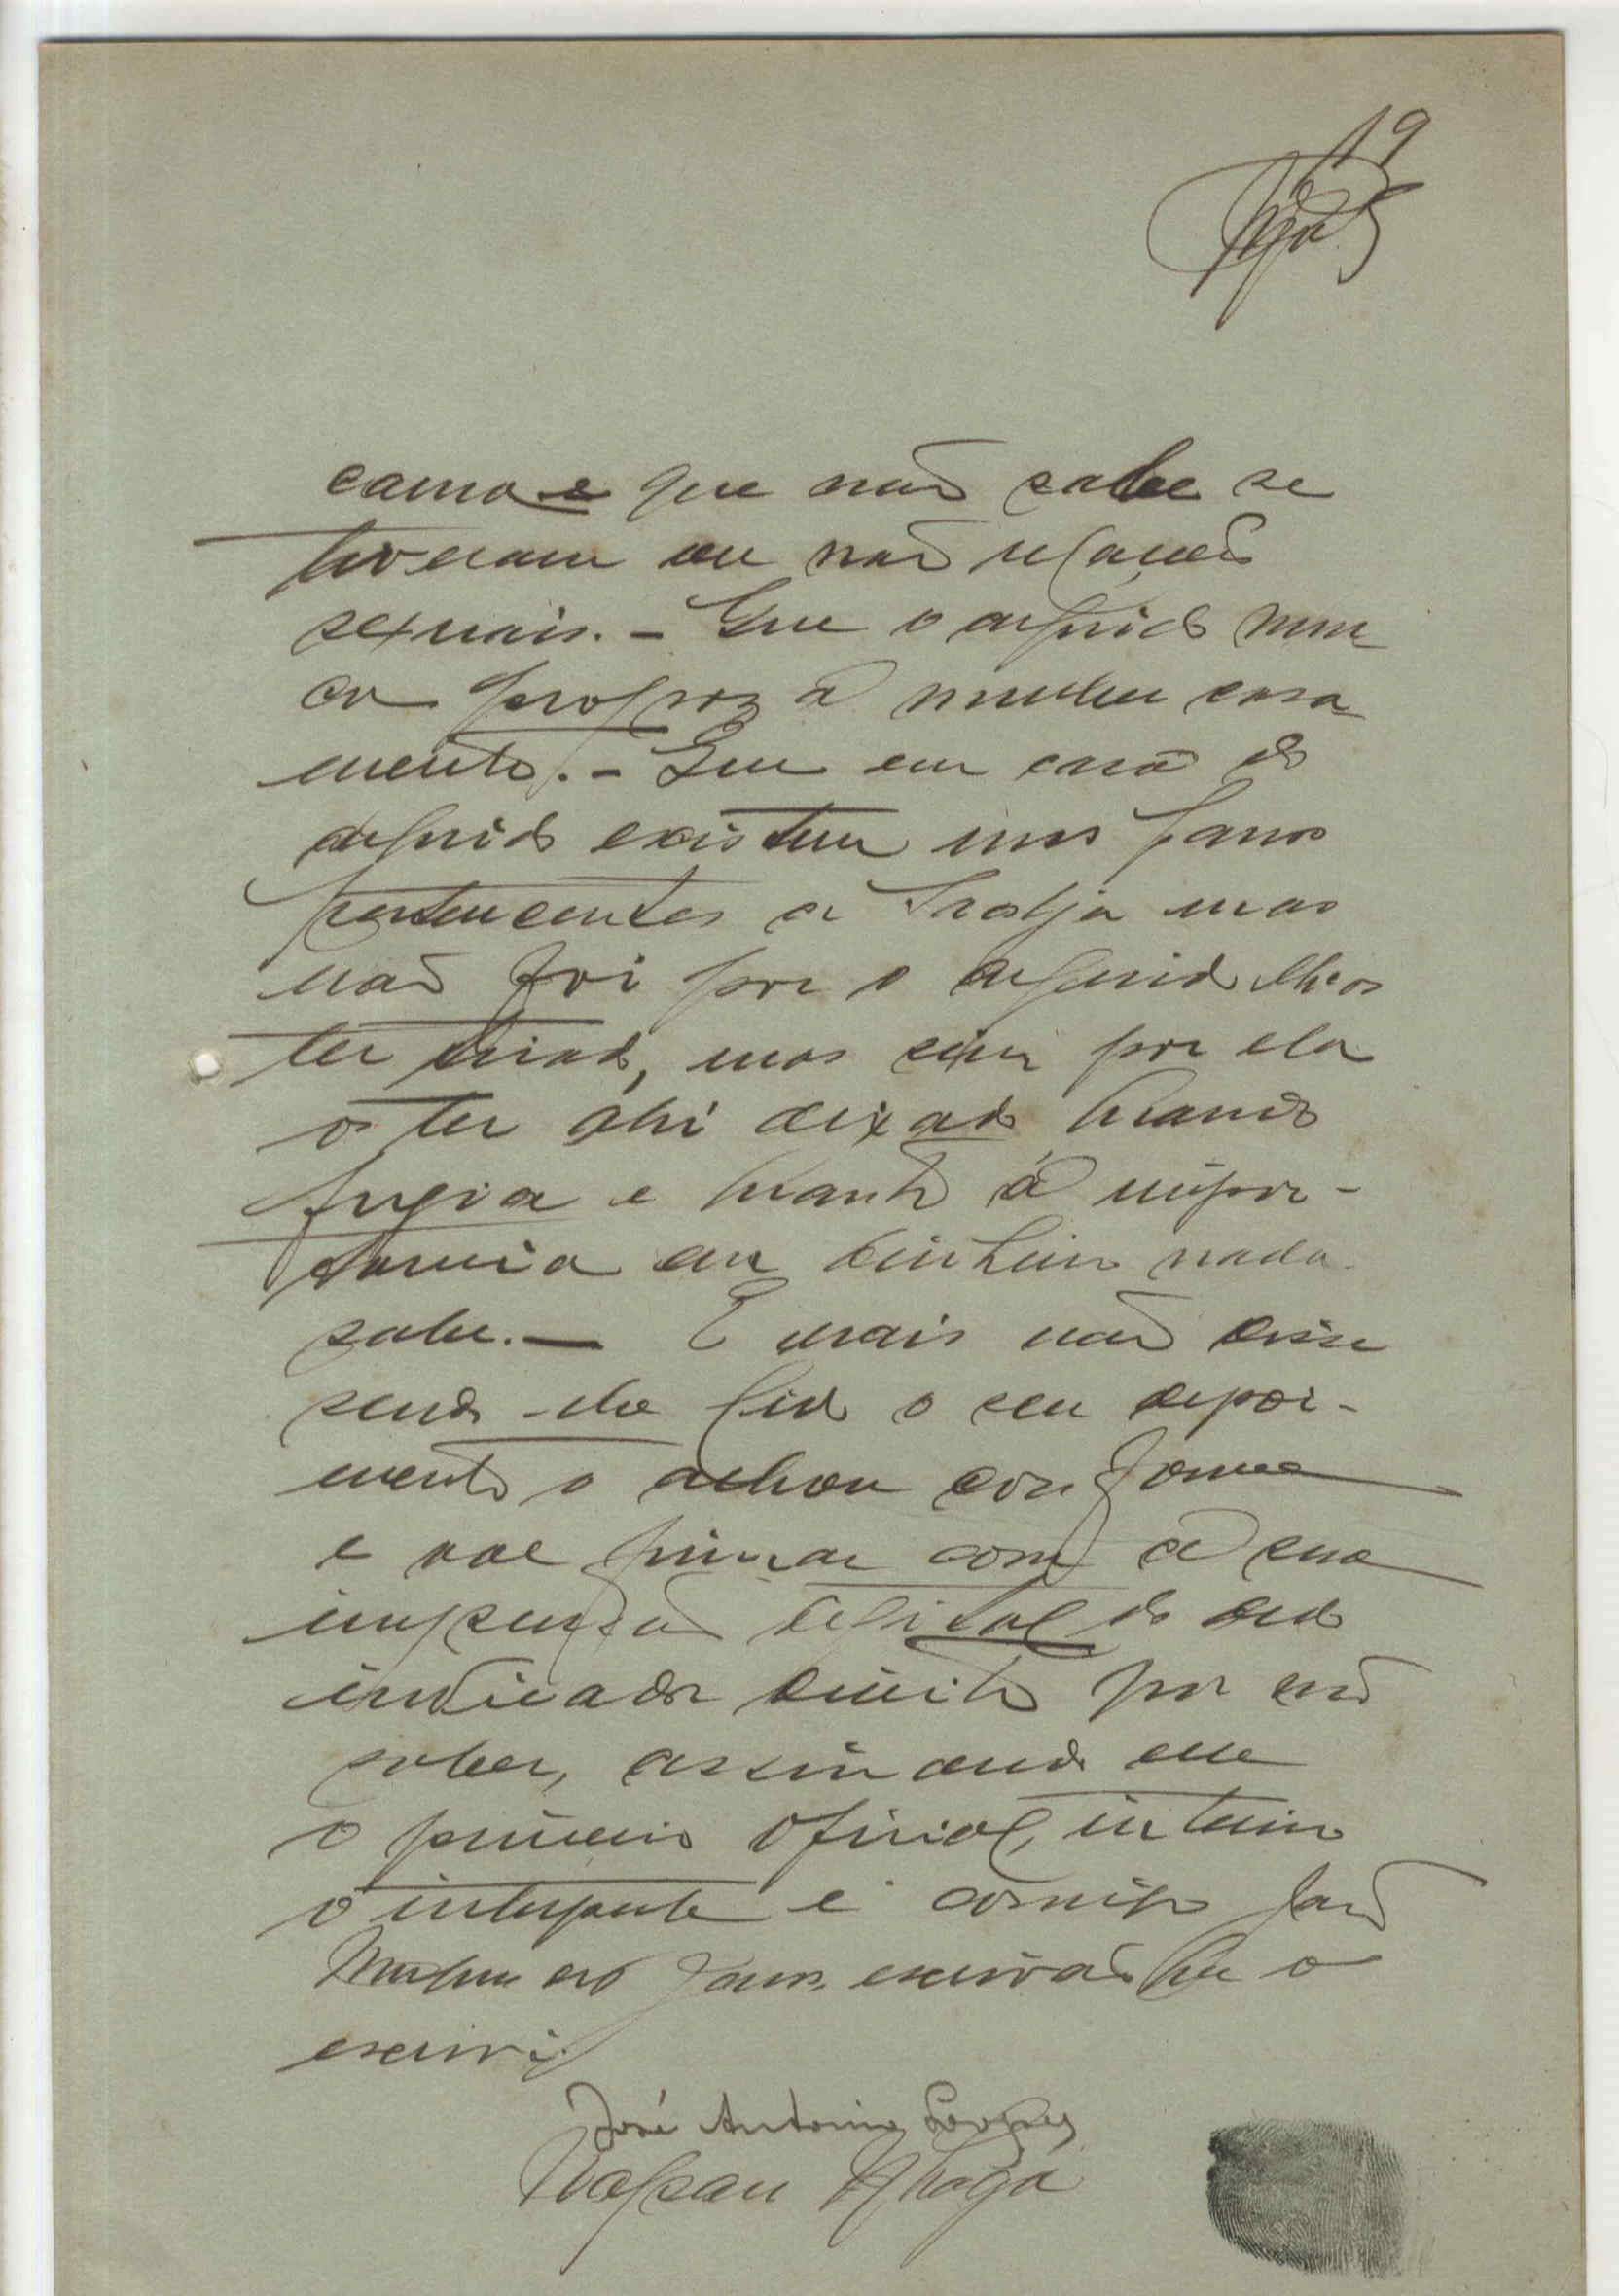 19
cama e que não sabe se
tiveram ou não relações
sexuais. - Que o arguido nun
ca propoz á mulher casa
mento. - Que em casa do
arguido existem uns panos
pertencentes a mas
não foi por o arguido lhos
ter tirado, mas sim por ela
os ter ahi deixado quando
fugia e quanto á impor-
tancia em dinheiro nada
sabe. — E mais não disse
sendo-lhe lido o seu depoi-
mento o achou conforme
e vae firmar com a sua
impressão digital do dedo
indicador direito por não
saber, assinando
o primeiro oficial, interino
o interprete e comigo
escrivão que o
escrevi
José Antonio Lopes